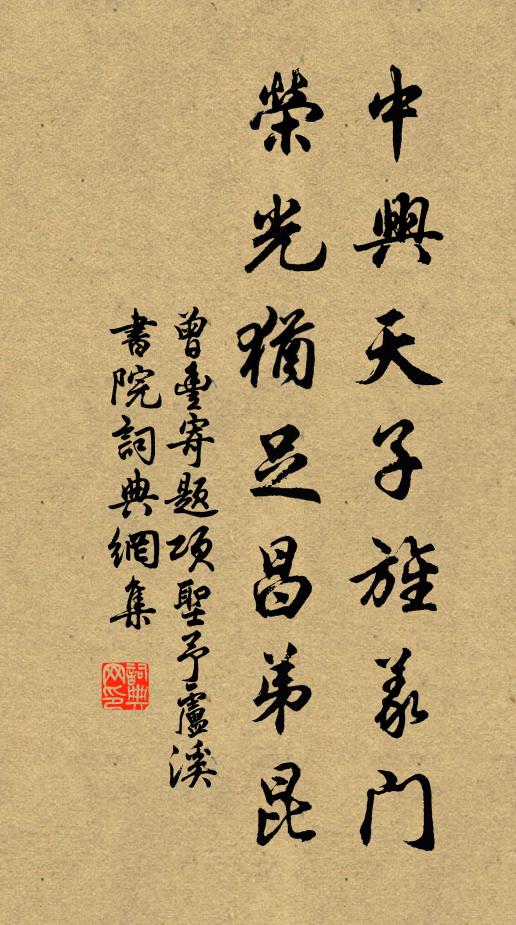 中興天子旌義門
榮光猶足昌弟昆
曾豐寄題項聖予盧溪
書院詞典網集
詞典網印